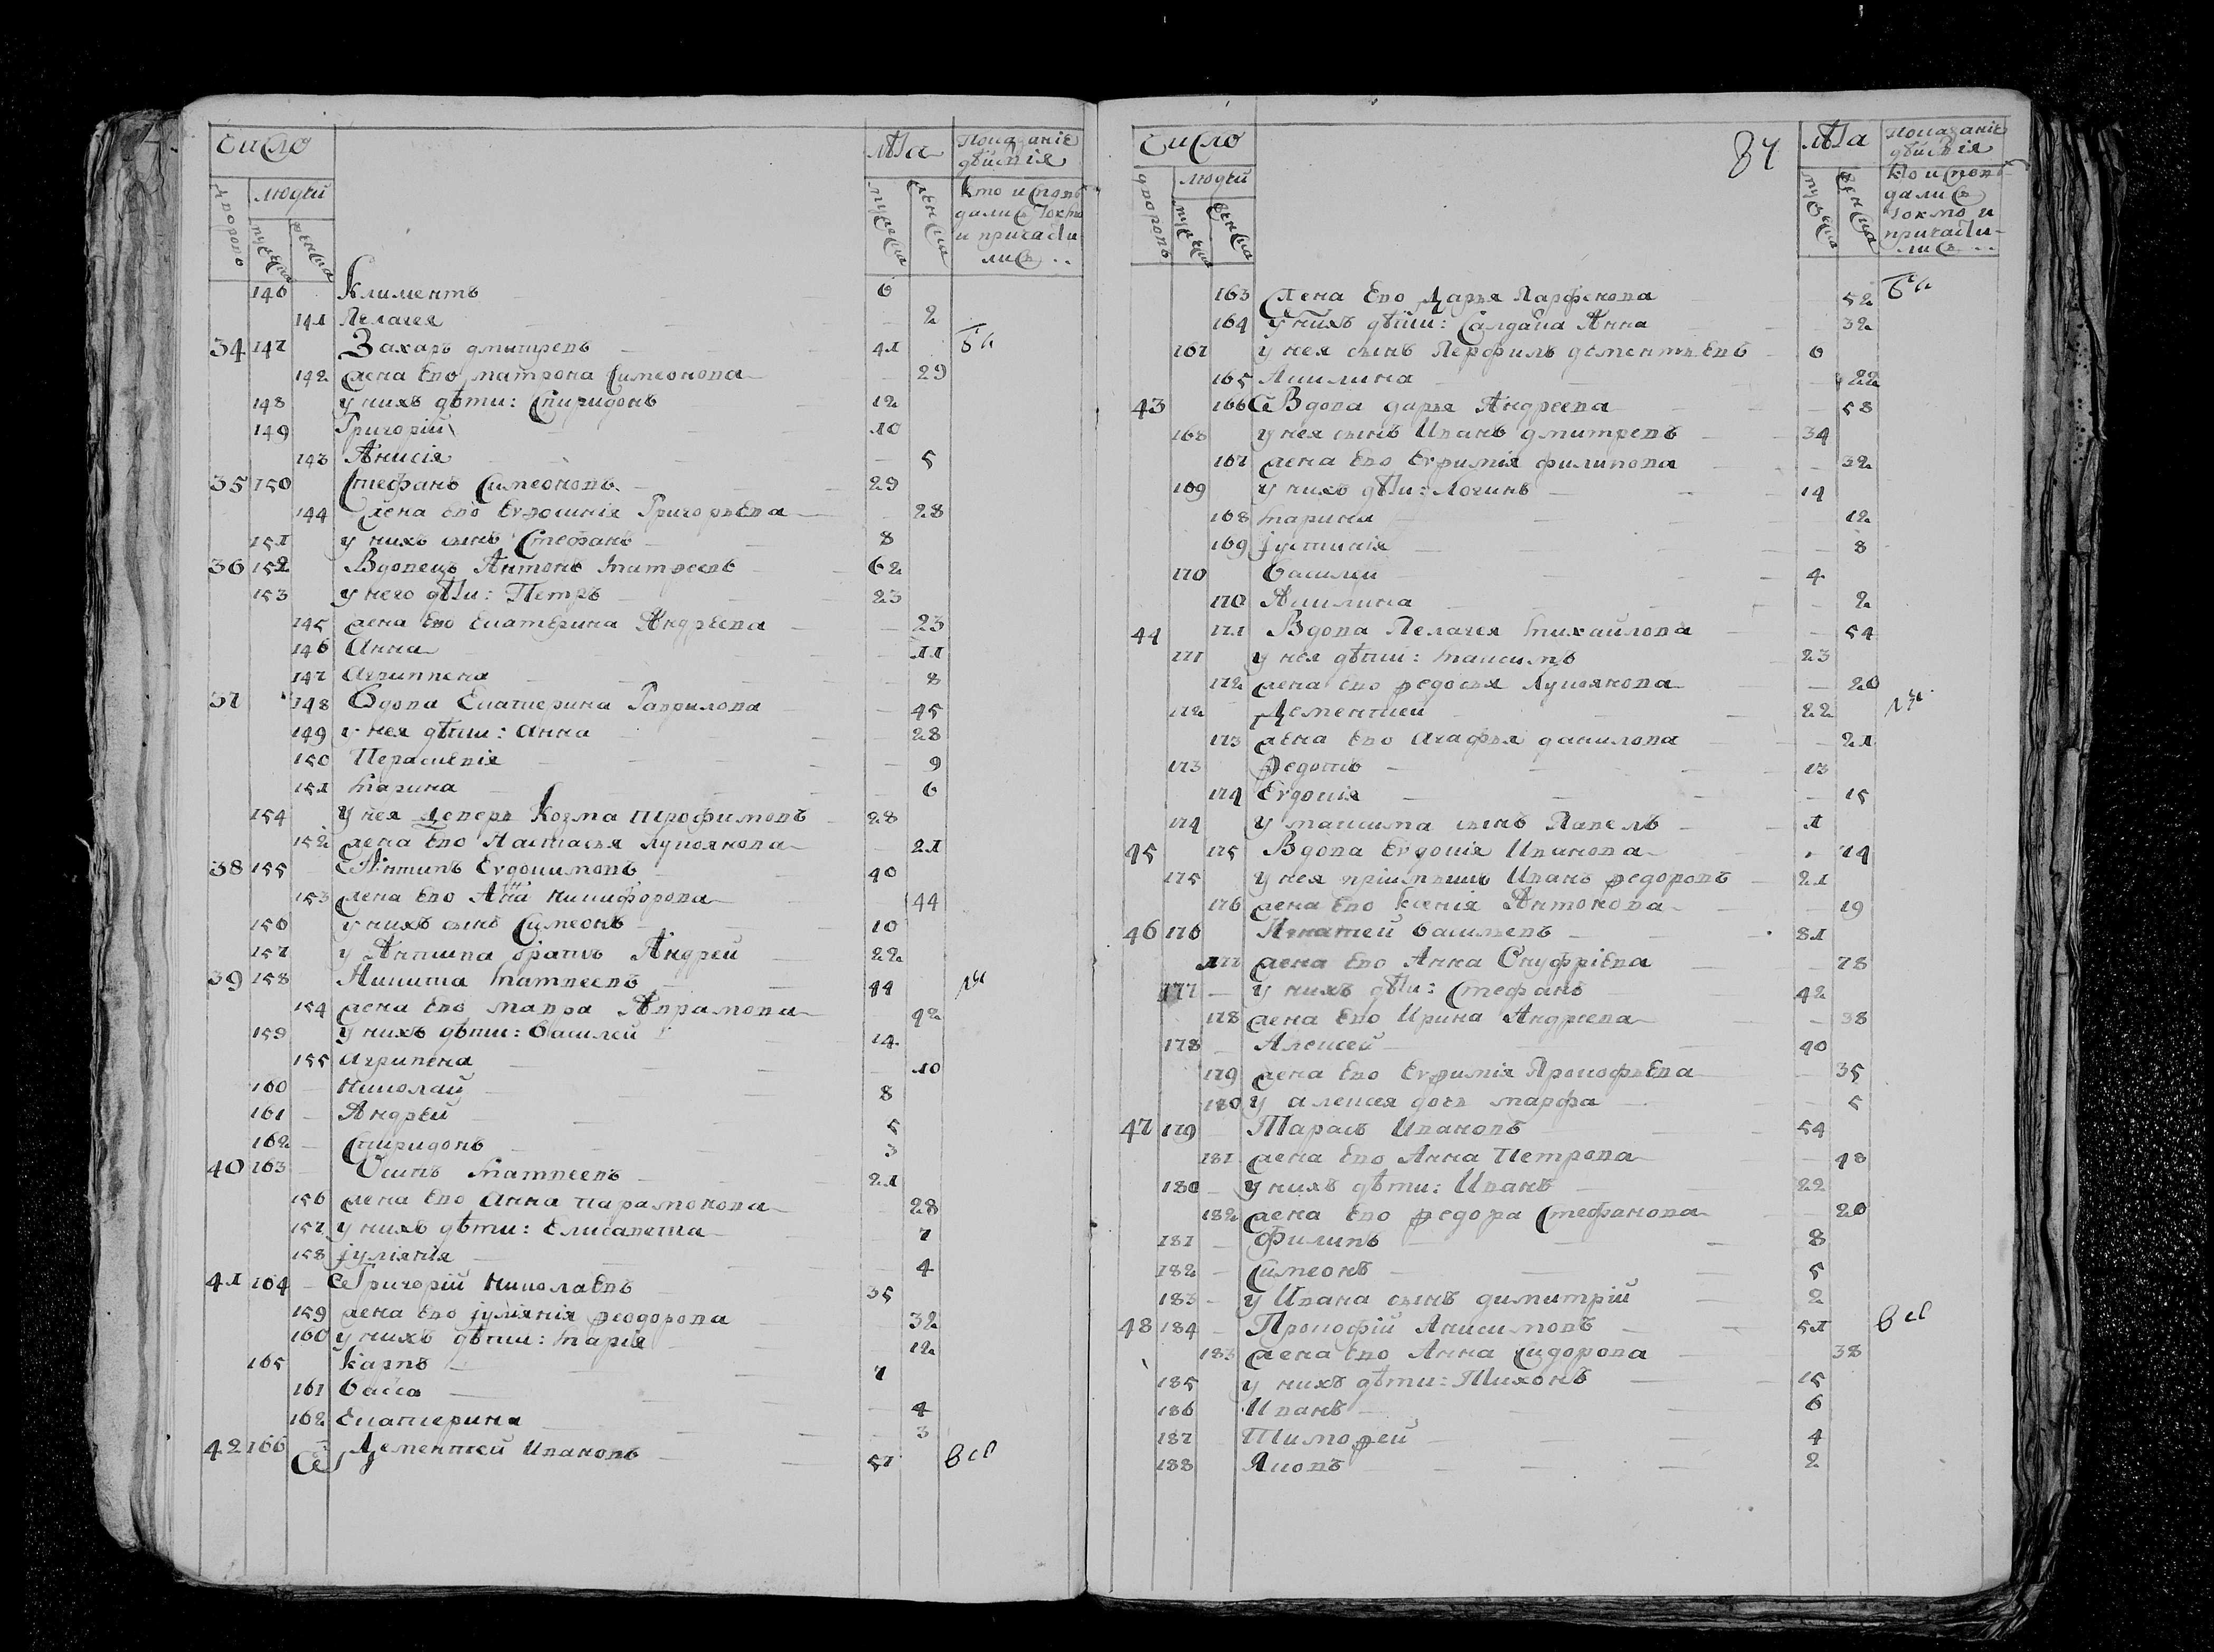 Число
Лѣта
Показаніе дѣйствія
дворовъ
людей
мужеска
женска
мужеска
женска
Кто исповѣдались токмо и причастились
146 Климентъ 6
141 Пелагея 2
34 147 Захаръ дмитревъ 41
142 жена Ево матрона Симеонова 29
148 у нихъ дѣти: Спиридонъ 12
149 Григорій 10
143 Анисія 5
35 150 Стефанъ Симеоновъ 29
144 жена Ево Еѵдокинія Григорьева 28
151 у нихъ сынъ Стефанъ 8
36 152 Вдовецъ Антонъ матвеевъ 62
153 у него дѣти: Петръ 23
145 жена Ево Екатерина Андреева 23
146 Анна 11
147 Агриппена 8
37 148 Вдова Екатерина Гаврилова 45
149 у нея дѣти: Анна 28
150 Параскевія 9
151 марина 6
154 у нея деверь Козма трофимовъ 28
152 жена Ево Настасья лукоянова 21
38 155 Антипъ Евдокимовъ 40
153 жена Ево Анна никифорова 44
156 у нихъ сынъ Симеонъ 10
157 у Антипа братъ Андрей 22
39 158 Никита матвеевъ 44
154 жена Ево мавра Аврамова 42
159 у нихъ дѣти: василей 14
155 агрипена 10
160 николай 8
161 Андрей 5
162 Спиридонъ 3
40 163 Осипъ матвеевъ 21
156 жена Ево Анна парамонова 28
157 у нихъ дѣти: Елисавета 7
158 іуліянія 4
41 164 Григорій николаевъ 35
159 жена Ево іуліянія Феодорова 32
160 у нихъ дѣти: марія 12
165 карпъ 7
161 васса 4
162 Екатерина 3
42 166 Дементей Ивановъ 57
84
Число
Лѣта
Показаніе дѣйствія
дворовъ
людей
мужеска
женска
мужеска
женска
Кто исповѣдались токмо и причастились
163 Жена Ево Дарья Парфенова 52
164 у нихъ дѣти: Салдатка Анна 32
167 у нея сынъ Перфилъ дементьевъ 6
165 Акилина 22
43 166 Вдова дарья Андреева 58
168 у нея сынъ Иванъ дмитревъ 34
167 жена Ево Еѵфимія филипова 32
169 у нихъ дѣти: Логинъ 14
168 марина 12
169 іустинія 8
170 василей 4
170 Акилина 2
44 171 Вдова Пелагея михаилова 54
171 у нея дѣти: максимъ 23
172 жена Ево Федосья Лукоянова 20
172 Дементией 22
173 жена Ево Агафья данилова 21
173 Федотъ 13
174 Евдокія 15
174 у максима сынъ Павелъ 1
45 175 Вдова Евдокія Иванова 74
175 у нея пріимышъ Иванъ Федоровъ 21
176 жена Ево ксенія Антонова 19
46 176 Игнатей васильевъ 81
177 жена Ево Анна Онуфріева 78
177 у нихъ дѣти: Стефанъ 42
178 жена Ево Ирина Андреева 38
178 Алексей 40
179 жена Ево Еѵфимія Прокофьева 35
180 у алексея дочь марфа 5
47 179 Тарасъ Ивановъ 54
181 жена Ево Анна Петрова 48
180 у нихъ дѣти: Иванъ 22
182 жена Ево Федора Стефанова 20
181 Филипъ 8
182 Симеонъ 5
183 у Ивана сынъ димитрій 2
48 184 Прокофій Анисимовъ 51
183 жена Ево Анна сидорова 38
185 у нихъ дѣти: Тихонъ 15
186 Иванъ 6
187 Тимофей 4
188 Яковъ 2